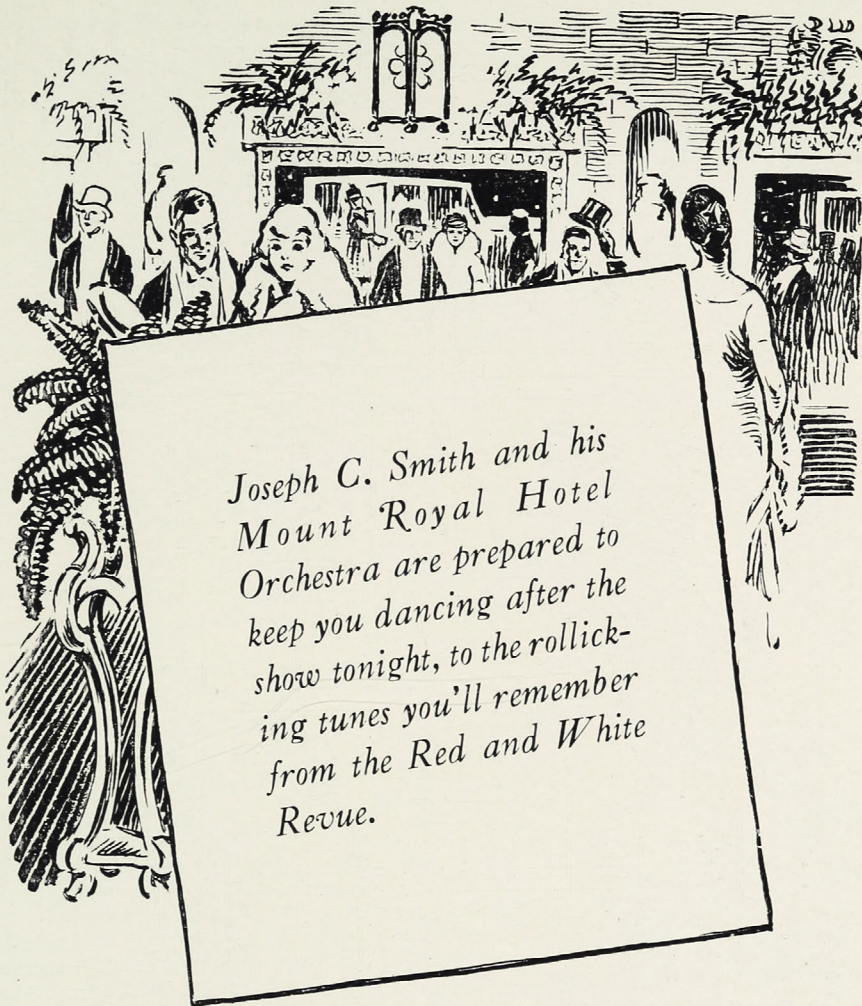 Joseph C. Smith and his
Mount Royal Hotel
Orchestra are prepared to
keep you dancing after the
show tonight, to the rollick-
ing tunes you'll remember
from the Red and White
Revue.